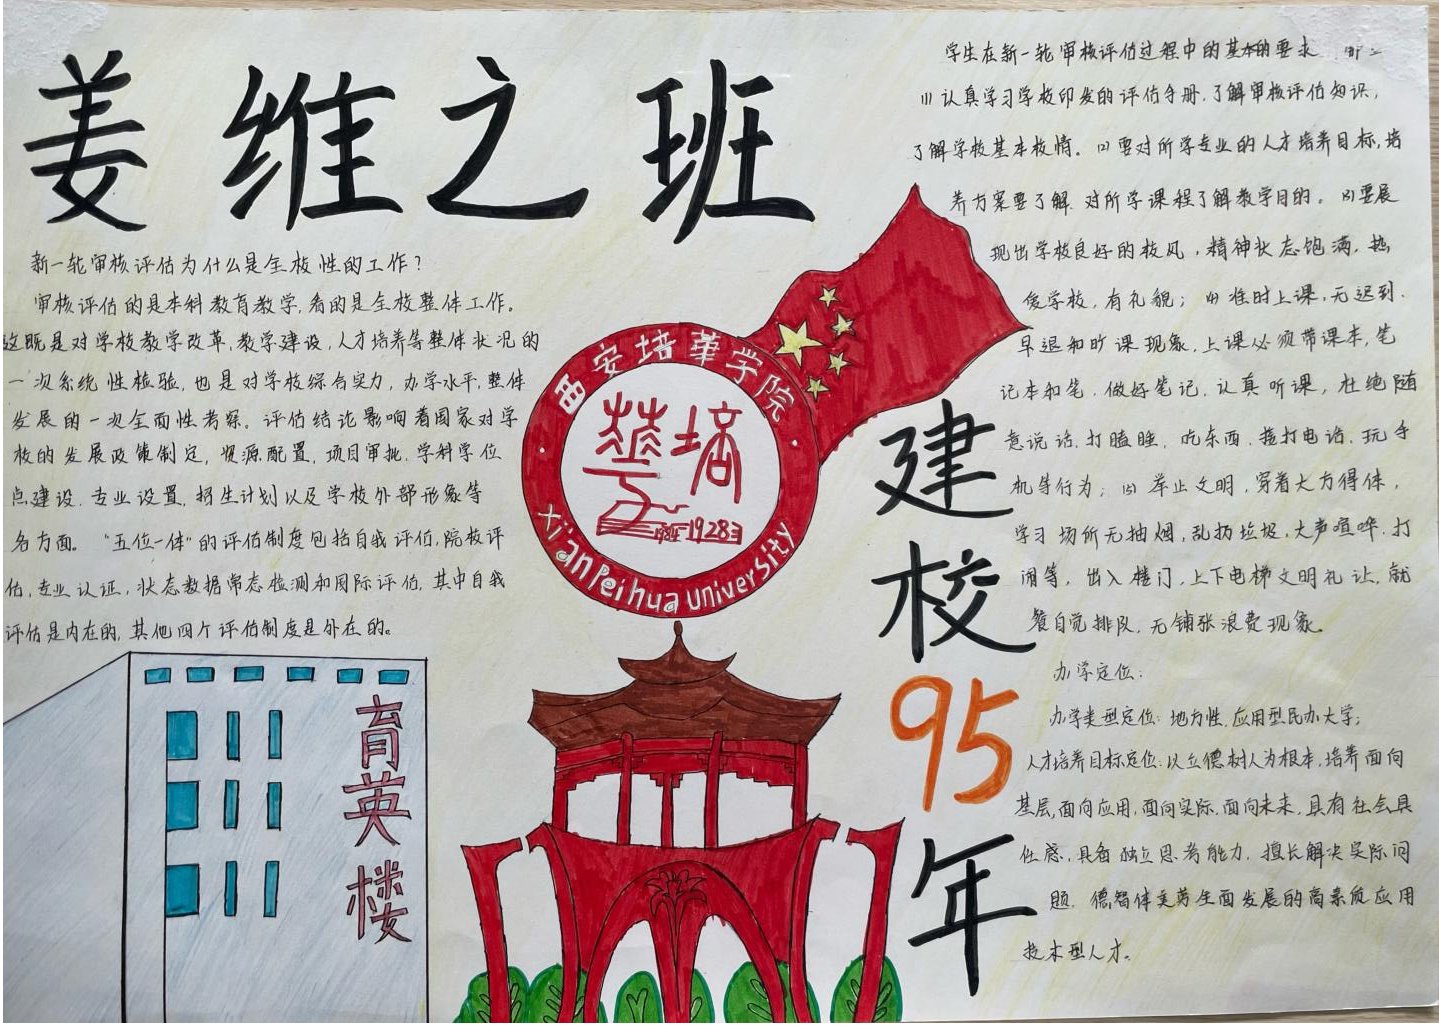 姜维之班
新一轮审核评估为什么是全校性的工作？
审核评估的是本科教育教学，看的是全校整体工作。
这既是对学校教学改革，教学建设，人才培养等整体状况的
一次系统性检验，也是对学校综合实力，办学水平，整体
发展的一次全面性考察。评估结论影响着国家对学
校的发展政策制定，资源配置，项目审批，学科学位
点建设．专业设置，招生计划以及学校外部形象等
各方面。“五位一体”的评估制度包括自我评估，院校评
估，专业认证，状态数据常态检测和国际评估，其中自我
评估是内在的，其他四个评估制度是外在的。
育英楼
西安培华学院
华培
1928
Xi'an Peihua University
建校95年
学生在新一轮审核评估过程中的基本的要求
⑴认真学习学校印发的评估手册，了解审核评估知识，
了解学校基本校情。⑵要对所学专业的人才培养目标，培
养方案要了解 对所学课程了解教学目的。⑶要展
现出学校良好的校风，精神状态饱满，热
爱学校，有礼貌；⑷准时上课，无迟到．
早退和旷课现象，上课必须带课本，笔
记本和笔．做好笔记，认真听课，杜绝随
意说话，打瞌睡．吃东西．接打电话．玩手
机等行为；⑸举止文明，穿着大方得体，
学习场所无抽烟，乱扔垃圾，大声喧哗．打
闹等，出入楼门，上下电梯文明礼让，就
餐自觉排队，无铺张浪费现象。
办学定位：
办学类型定位：地方性，应用型民办大学；
人才培养目标定位：以立德树人为根本，培养面向
基层，面向应用，面向实际，面向未来，具有社会具
任感，具备独立思考能力．擅长解决实际问
题．德智体美劳全面发展的高素质应用
技术型人才。